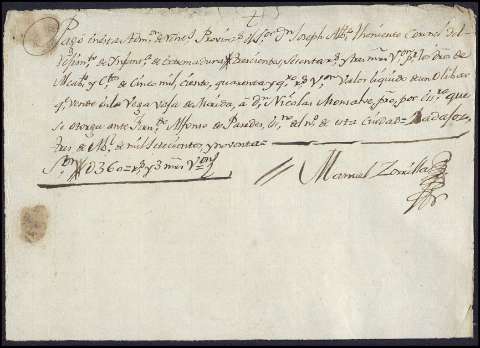 Pagó en esta Adm.on de Rent.s Provinc.s el S.or D.n Joseph Alb.o Theniente Coronel del
Regim.to de Infant.a de Extremadura trescientos, sesenta r.s y tres mrs v.on p.r los dros de
Alcab.a y C.tos de Cinco mil, ciento, quarenta y q.ro r.s v.on valor liquido de un Olibar
q.e vende en la Vega Vaja de Merida, a D.n Nicolas Monsalve, pro, por Es.ra que
se otorgo ante Fern.do Alfonso de Paredes, Es.no del n.o de esta Ciudad = Badajoz,
tres de Ab.l de mil setecientos, y noventa =
S.on # 0360 = r.s y 3 mrs v.on
Manuel Zorrilla